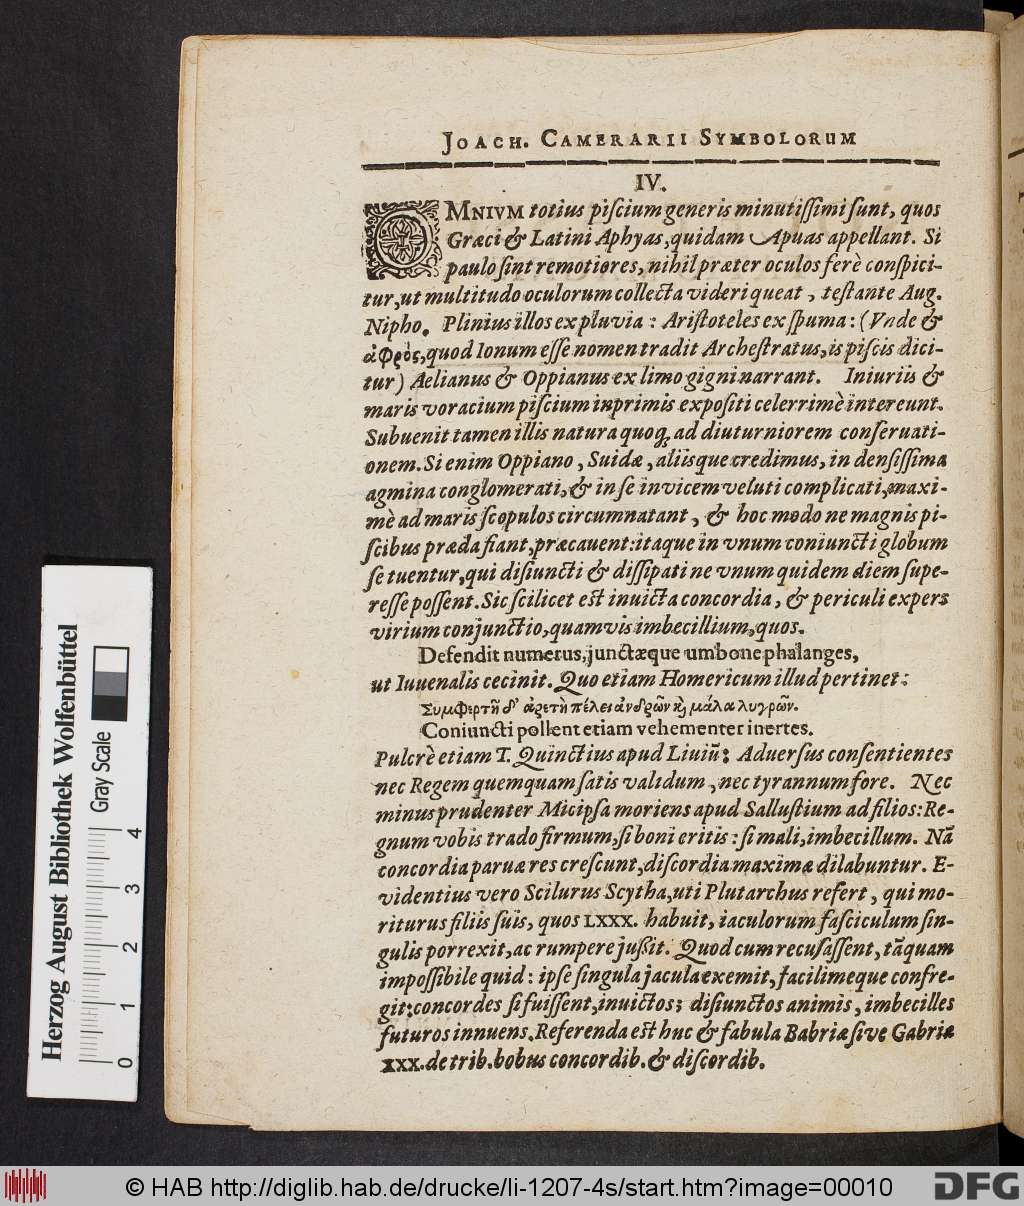 JOACH. CAMERARII SYMBOLORUM
IV.
OMNIVM totius piſcium generis minutiſſimi ſunt, quos
Græci & Latini Aphyas, quidam Apuas appellant. Si
paulo ſint remotiores, nihil præter oculos ferè conſpici-
tur, ut multitudo oculorum collecta videri queat, teſtante Aug.
Nipho. Plinius illos ex pluvia: Ariſtoteles ex ſpuma: (Vnde &
ἀφρὸς, quod Ionum eſſe nomen tradit Archeſtratus, is piſcis dici-
tur) Aelianus & Oppianus ex limo gigni narrant. Iniuriis &
maris voracium piſcium inprimis expoſiti celerrimè intereunt.
Subuenit tamen illis natura quoq; ad diuturniorem conſeruati-
onem. Si enim Oppiano, Suidæ, aliisque credimus, in denſiſſima
agmina conglomerati, & in ſe invicem veluti complicati, maxi-
mè ad maris ſcopulos circumnatant, & hoc modo ne magnis pi-
ſcibus præda fiant, præcauent: itaque in vnum coniuncti globum
ſe tuentur, qui diſiuncti & diſſipati ne vnum quidem diem ſupe-
reſſe poſſent. Sic ſcilicet eſt inuicta concordia, & periculi expers
virium conjunctio, quamvis imbecillium, quos.
Defendit numerus, junctæque umbone phalanges,
ut Iuuenalis cecinit. Quo etiam Homericum illud pertinet:
Συμφερτὴ δ' ἀρετὴ πέλει ἀνδρῶν κ̀ μάλα λυγρῶν.
Coniuncti pollent etiam vehementer inertes.
Pulcrè etiam T. Quinctius apud Liuiū: Aduerſus conſentientes
nec Regem quemquam ſatis validum, nec tyrannum fore. Nec
minus prudenter Micipſa moriens apud Salluſtium ad filios: Re-
gnum vobis trado firmum, ſi boni eritis: ſi mali, imbecillum. Nā
concordia paruæ res creſcunt, diſcordia maximæ dilabuntur. E-
videntius vero Scilurus Scytha, uti Plutarchus refert, qui mo-
riturus filiis ſuis, quos LXXX. habuit, iaculorum faſciculum ſin-
gulis porrexit, ac rumpere juſſit. Quod cum recuſaſſent, tāquam
impoſſibile quid: ipſe ſingula jacula exemit, facilimeque confre-
git: concordes ſi fuiſſent, inuictos; diſiunctos animis, imbecilles
futuros innuens. Referenda eſt huc & fabula Babriæ ſive Gabriæ
XXX. de trib. bobus concordib. & diſcordib.
Herzog August Bibliothek Wolfenbüttel
Gray Scale
0 1 2 3 4
© HAB http://diglib.hab.de/drucke/li-1207-4s/start.htm?image=00010
DFG